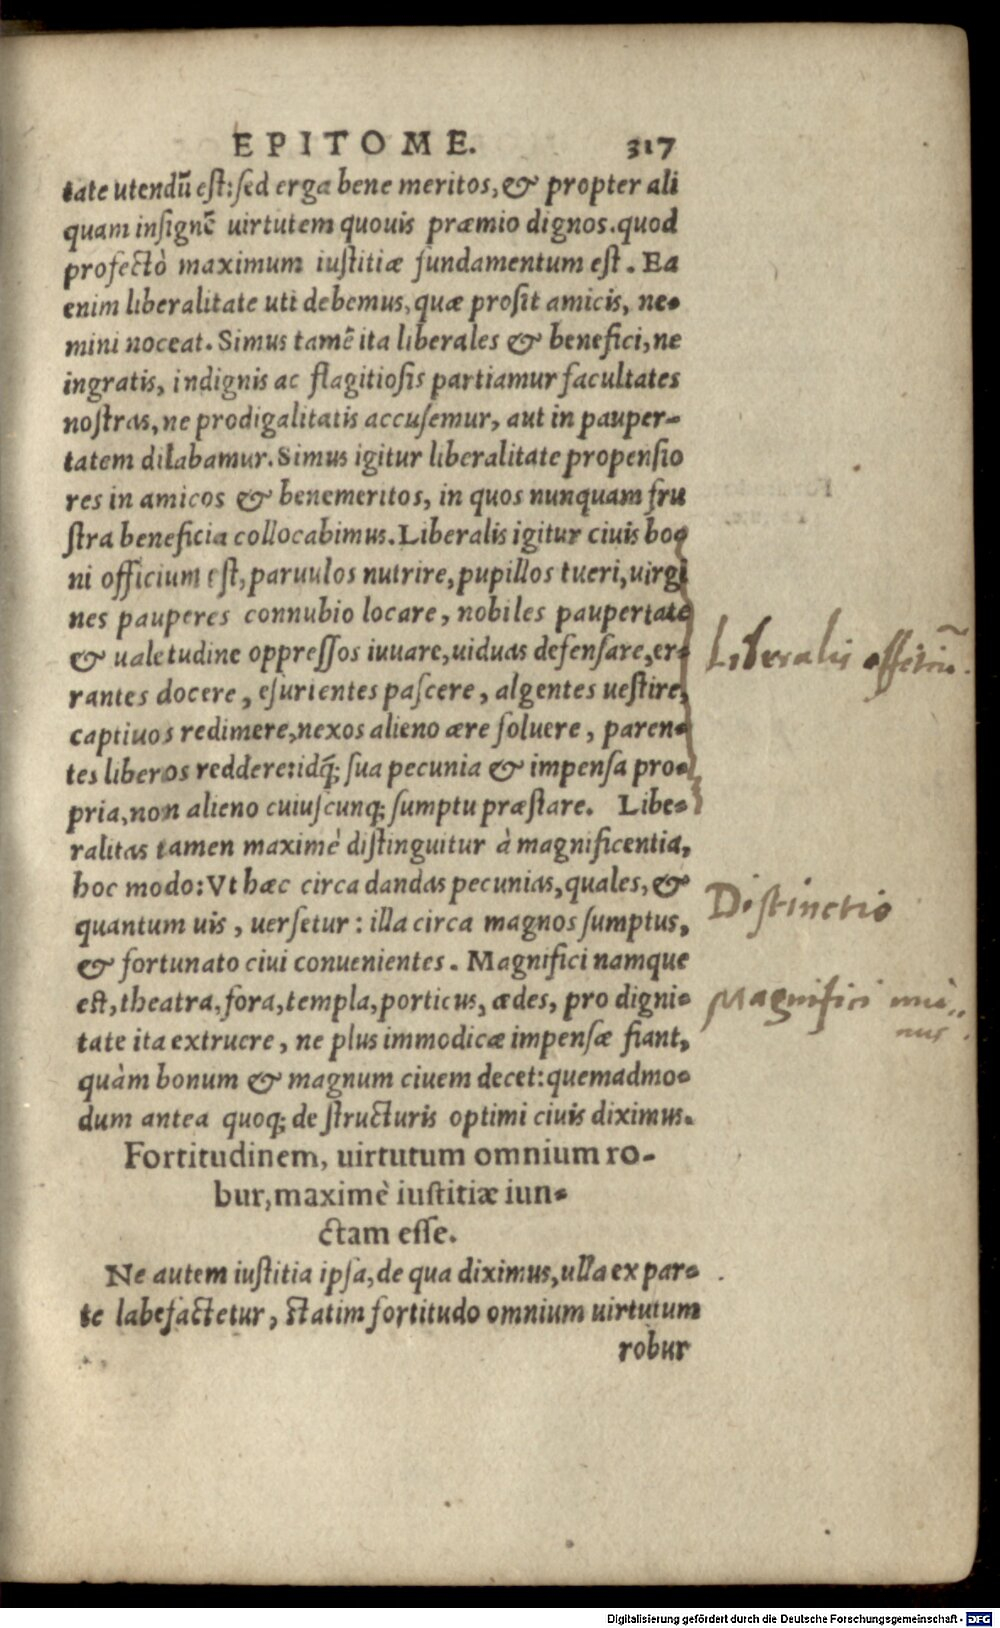 EPITOME. 317
tate utendū est: sed erga bene meritos, & propter ali
quam insignē uirtutem quouis præmio dignos. quod
profectò maximum iustitiæ fundamentum est. Ea
enim liberalitate uti debemus, quæ prosit amicis, ne-
mini noceat. Simus tamē ita liberales & benefici, ne
ingratis, indignis ac flagitiosis partiamur facultates
nostras, ne prodigalitatis accusemur, aut in pauper-
tatem dilabamur. Simus igitur liberalitate propensio
res in amicos & benemeritos, in quos nunquam fru
stra beneficia collocabimus. Liberalis igitur ciuis bo-
ni officium est, paruulos nutrire, pupillos tueri, uirgi
nes pauperes connubio locare, nobiles paupertate
& ualetudine oppressos iuuare, uiduas defensare, er-
rantes docere, esurientes pascere, algentes uestire,
captiuos redimere, nexos alieno ære soluere, paren-
tes liberos reddere: idq; sua pecunia & impensa pro-
pria, non alieno cuiuscunq; sumptu præstare. Libe-
ralitas tamen maximè distinguitur à magnificentia,
hoc modo: Vt hæc circa dandas pecunias, quales, &
quantum uis, uersetur: illa circa magnos sumptus,
& fortunato ciui conuenientes. Magnifici namque
est, theatra, fora, templa, porticus, ædes, pro digni-
tate ita extruere, ne plus immodicæ impensæ fiant,
quàm bonum & magnum ciuem decet: quemadmo-
dum antea quoq; de structuris optimi ciuis diximus.
Fortitudinem, uirtutum omnium ro-
bur, maximè iustitiæ iun-
ctam esse.
Ne autem iustitia ipsa, de qua diximus, ulla ex par-
te labefactetur, statim fortitudo omnium uirtutum
robur
Liberalis officiū.
Distinctio
Magnifici mu-
nus.
Digitalisierung gefördert durch die Deutsche Forschungsgemeinschaft - DFG